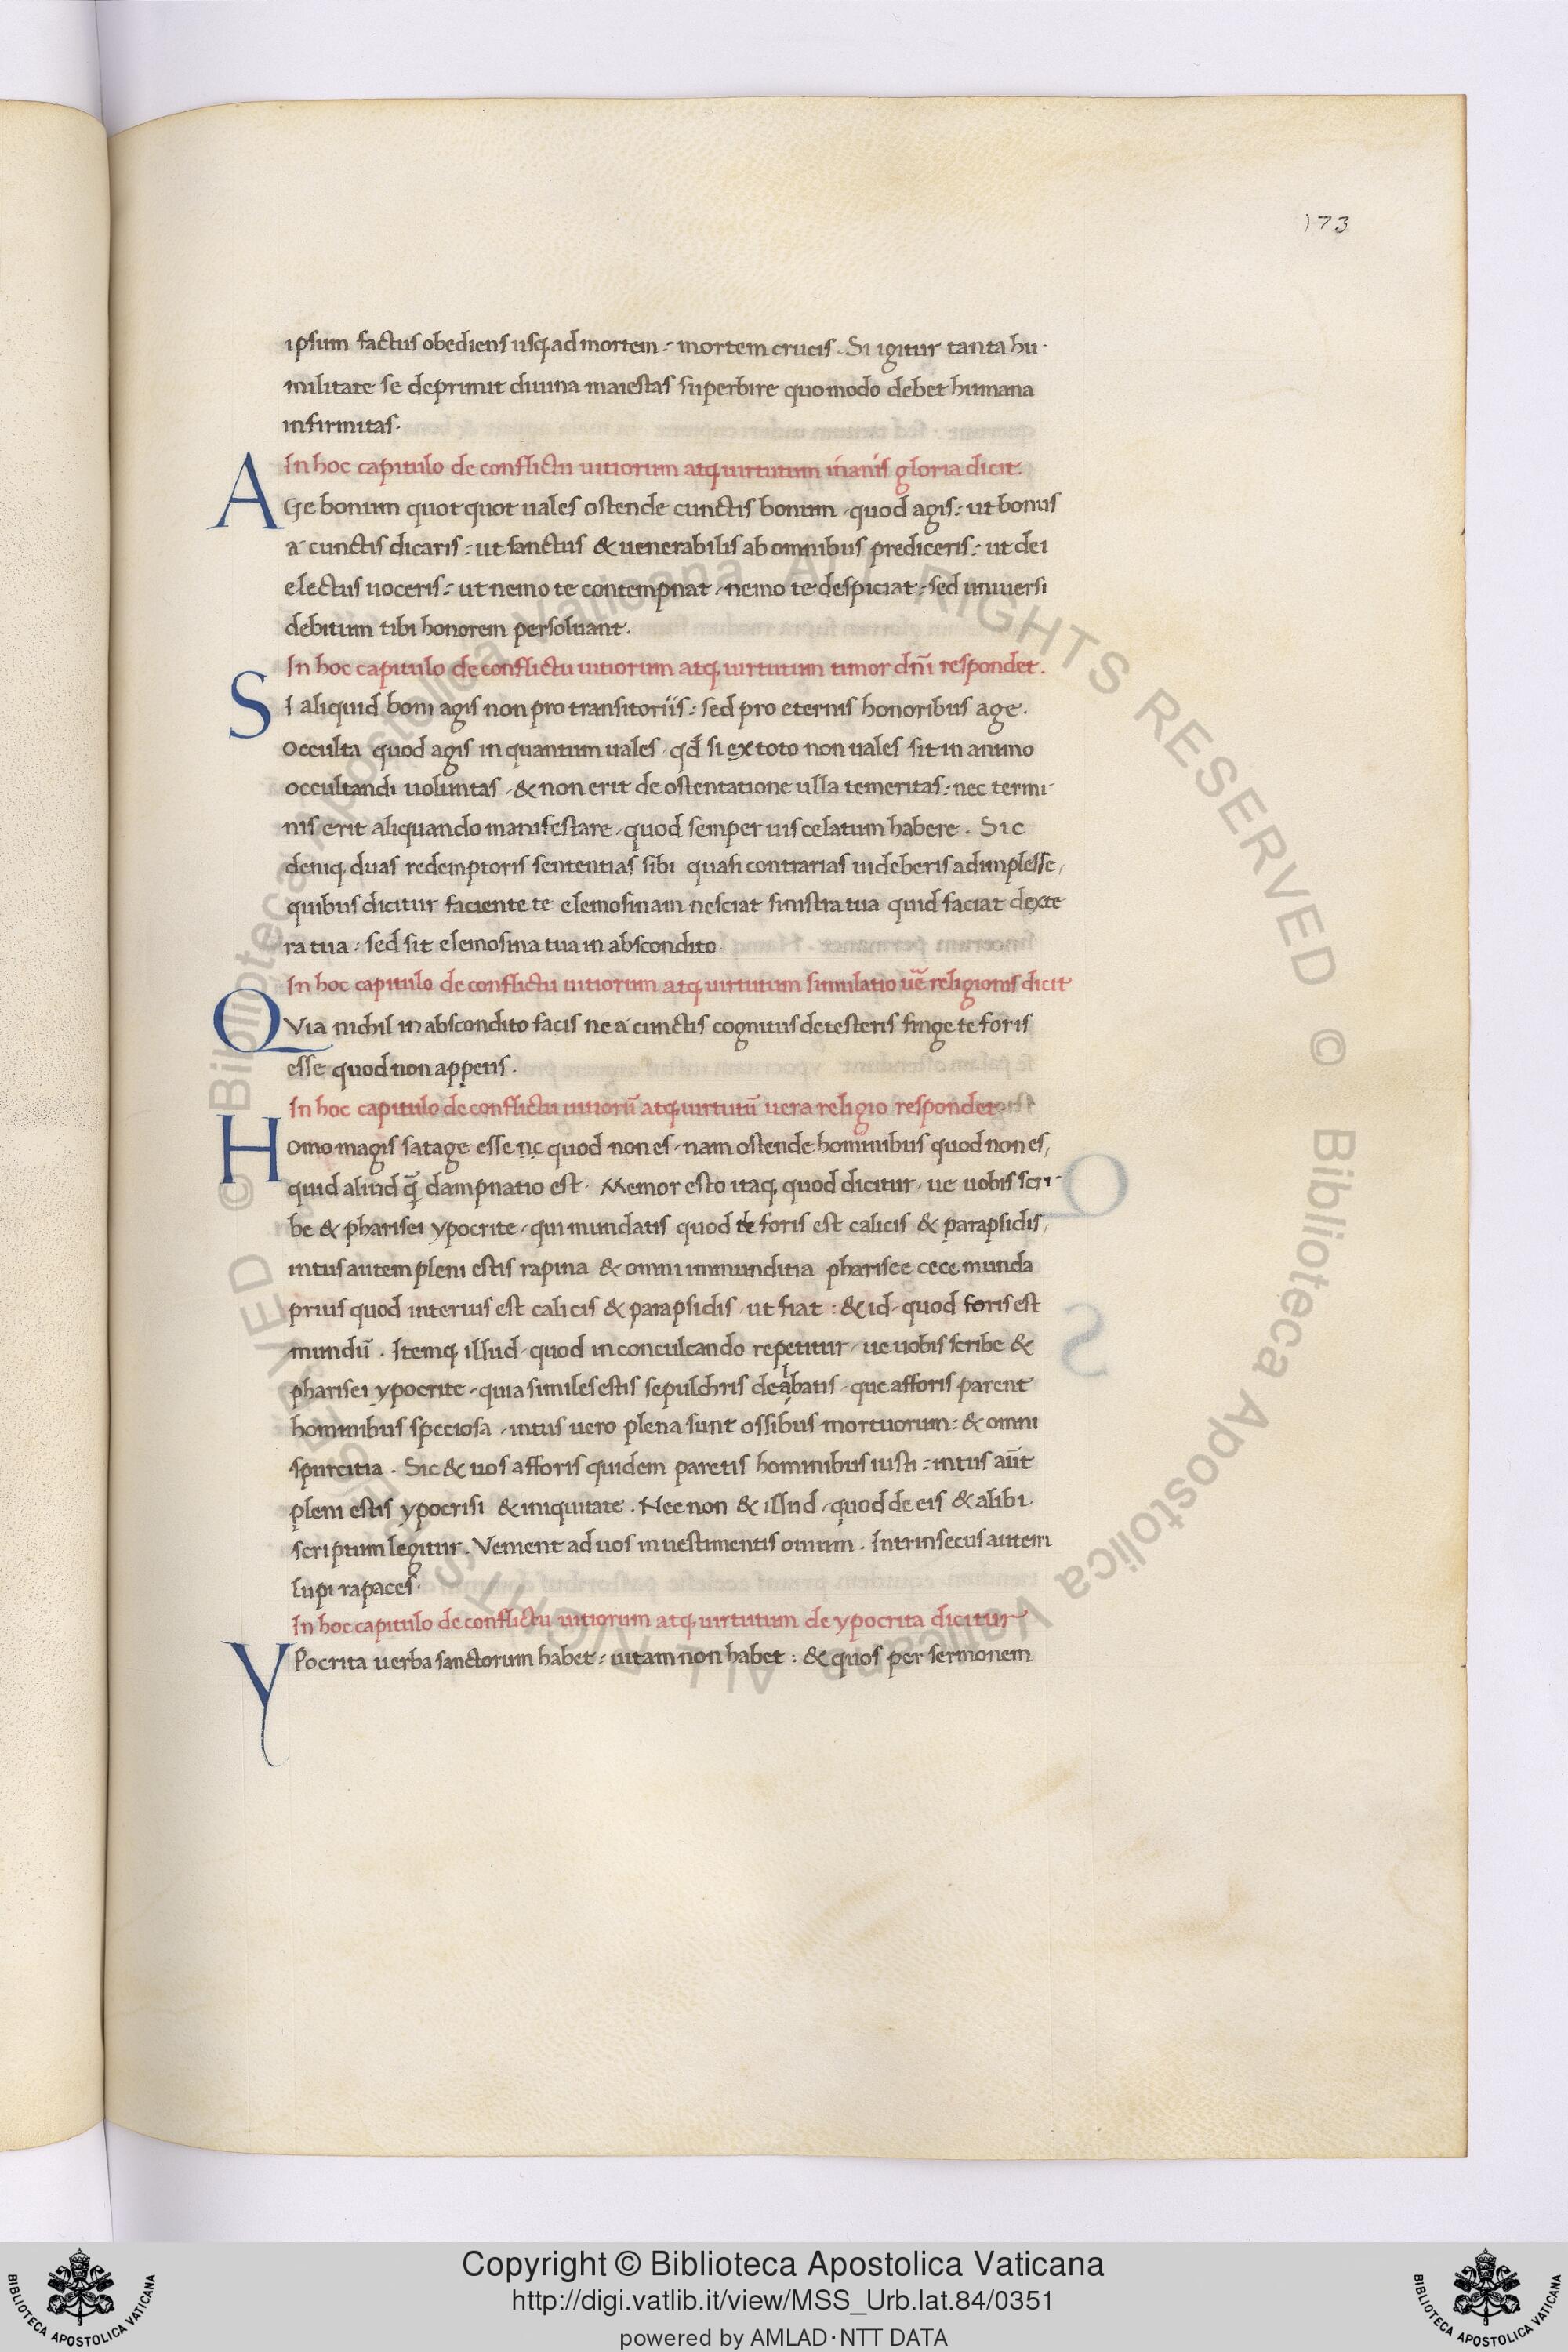 173
ipsum factus obediens usq; ad mortem : mortem crucis . Si igitur tanta hu-
militate se deprimit diuina maiestas superbire quomodo debet humana
infirmitas .
In hoc capitulo de conflictu uitiorum atq; uirtutum inanis gloria dicit .
AGe bonum quot quot uales ostende cunctis bonum , quod agis : ut bonus
a cunctis dicaris : ut sanctus & uenerabilis ab omnibus prediceris : ut dei
electus uoceris : ut nemo te contempnat , nemo te despiciat : sed uniuersi
debitum tibi honorem persoluant .
In hoc capitulo de conflictu uitiorum atq; uirtutum timor dñi respondet .
SI aliquid boni agis non pro transitoriis : sed pro eternis honoribus age .
occulta quod agis in quantum uales , qđ si ex toto non uales sit in animo
occultandi uoluntas , & non erit de ostentatione ulla temeritas : nec termi-
nis erit aliquando manifestare , quod semper uis celatum habere . Sic
deniq; duas redemptoris sententias sibi quasi contrarias uideberis adimplesse ,
quibus dicitur faciente te elemosinam nesciat sinistra tua quid faciat dexte
ra tua : sed sit elemosina tua in abscondito .
In hoc capitulo de conflictu uitiorum atq; uirtutum simulatio uẽ religionis dicit
QVia nichil in abscondito facis ne a cunctis cognitus detesteris finge te foris
esse quod non appetis .
In hoc capitulo de conflictu uitiorũ atq; uirtutũ uera religio respondet
Homo magis satage esse nc quod non es , nam ostende hominibus quod non es ,
quid aliud q̃ dampnatio est . Memor esto itaq; quod dicitur , ue uobis scri-
be & pharisei ypocrite , qui mundatis quod de foris est calicis & parapsidis ,
intus autem pleni estis rapina & omni immunditia pharisee cece munda
prius quod interius est calicis & parapsidis , ut fiat : & id , quod foris est
mundũ . Itemq; illud , quod in conculcando repetitur , ue uobis scribe &
pharisei ypocrite , quia similes estis sepulchris dealbatis , que afforis parent
hominibus speciosa , intus uero plena sunt ossibus mortuorum : & omni
spurcitia . Sic & uos afforis quidem paretis hominibus iusti : intus aũt
pleni estis ypocrisi & iniquitate . Nec non & illud , quod de eis & alibi
scriptum legitur . Venient ad uos in uestimentis ouium . Intrinsecus autem
lupi rapaces .
In hoc capitulo de conflictu uitiorum atq; uirtutum de ypocrita dicitur
YPocrita uerba sanctorum habet : uitam non habet : & quos per sermonem
Copyright © Biblioteca Apostolica Vaticana
http://digi.vatlib.it/view/MSS_Urb.lat.84/0351
powered by AMLAD·NTT DATA